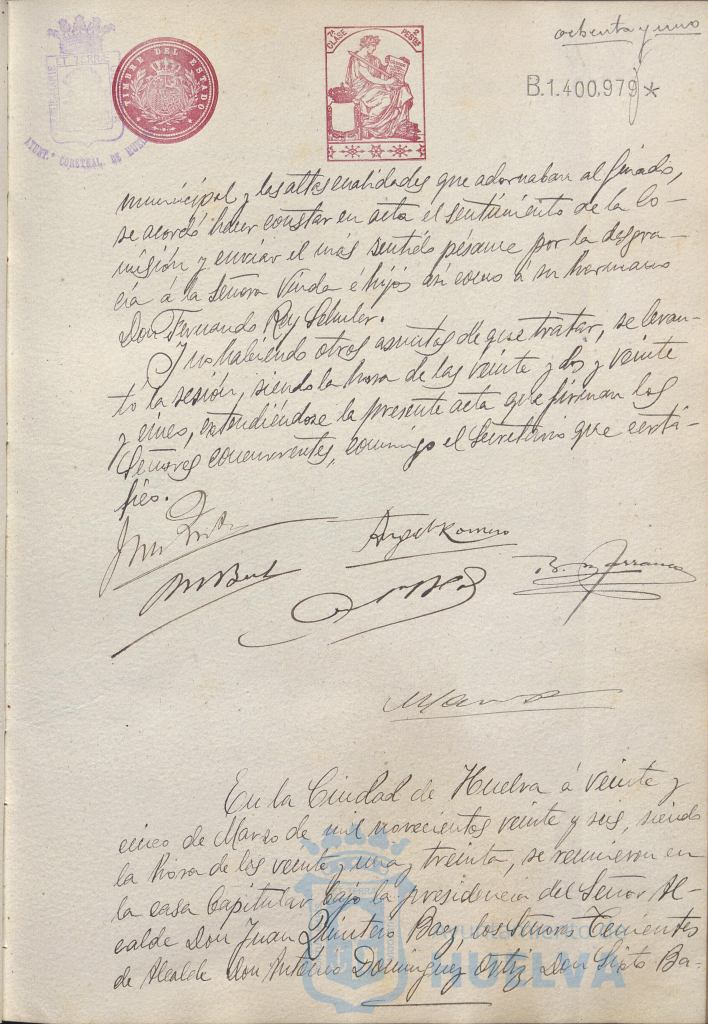 ochenta y uno
TIMBRE DEL ESTADO
7ª CLASE 2 PESTAS
B.1.400.979 *
ET TERRÆ
AYUNT.º CONSTNAL. DE HUELVA
municipal y las altas cualidades que adornaban al finado,
se acordó hacer constar en acta el sentimiento de la Co-
misión y enviar el más sentido pésame por la desgra-
cia á la Señora Viuda é hijos así como á su hermano
Don Fernando Rey
Y no habiendo otros asuntos de que tratar, se levan-
tó la sesión, siendo la hora de las veinte y dos y veinte
y cinco, extendiéndose la presente acta que firman los
Señores concurrentes, conmigo el Secretario que certi-
fico.
Angel Romero
En la Ciudad de Huelva á veinte y
cinco de Marzo de mil novecientos veinte y seis, siendo
la hora de las veinte y una y treinta, se reunieron en
la casa Capitular bajo la presidencia del Señor Al-
calde Don Juan Quintero Baez, los Señores Tenientes
de Alcalde Don Antonio Dominguez Ortiz, Don Sixto Ba-
HUELVA